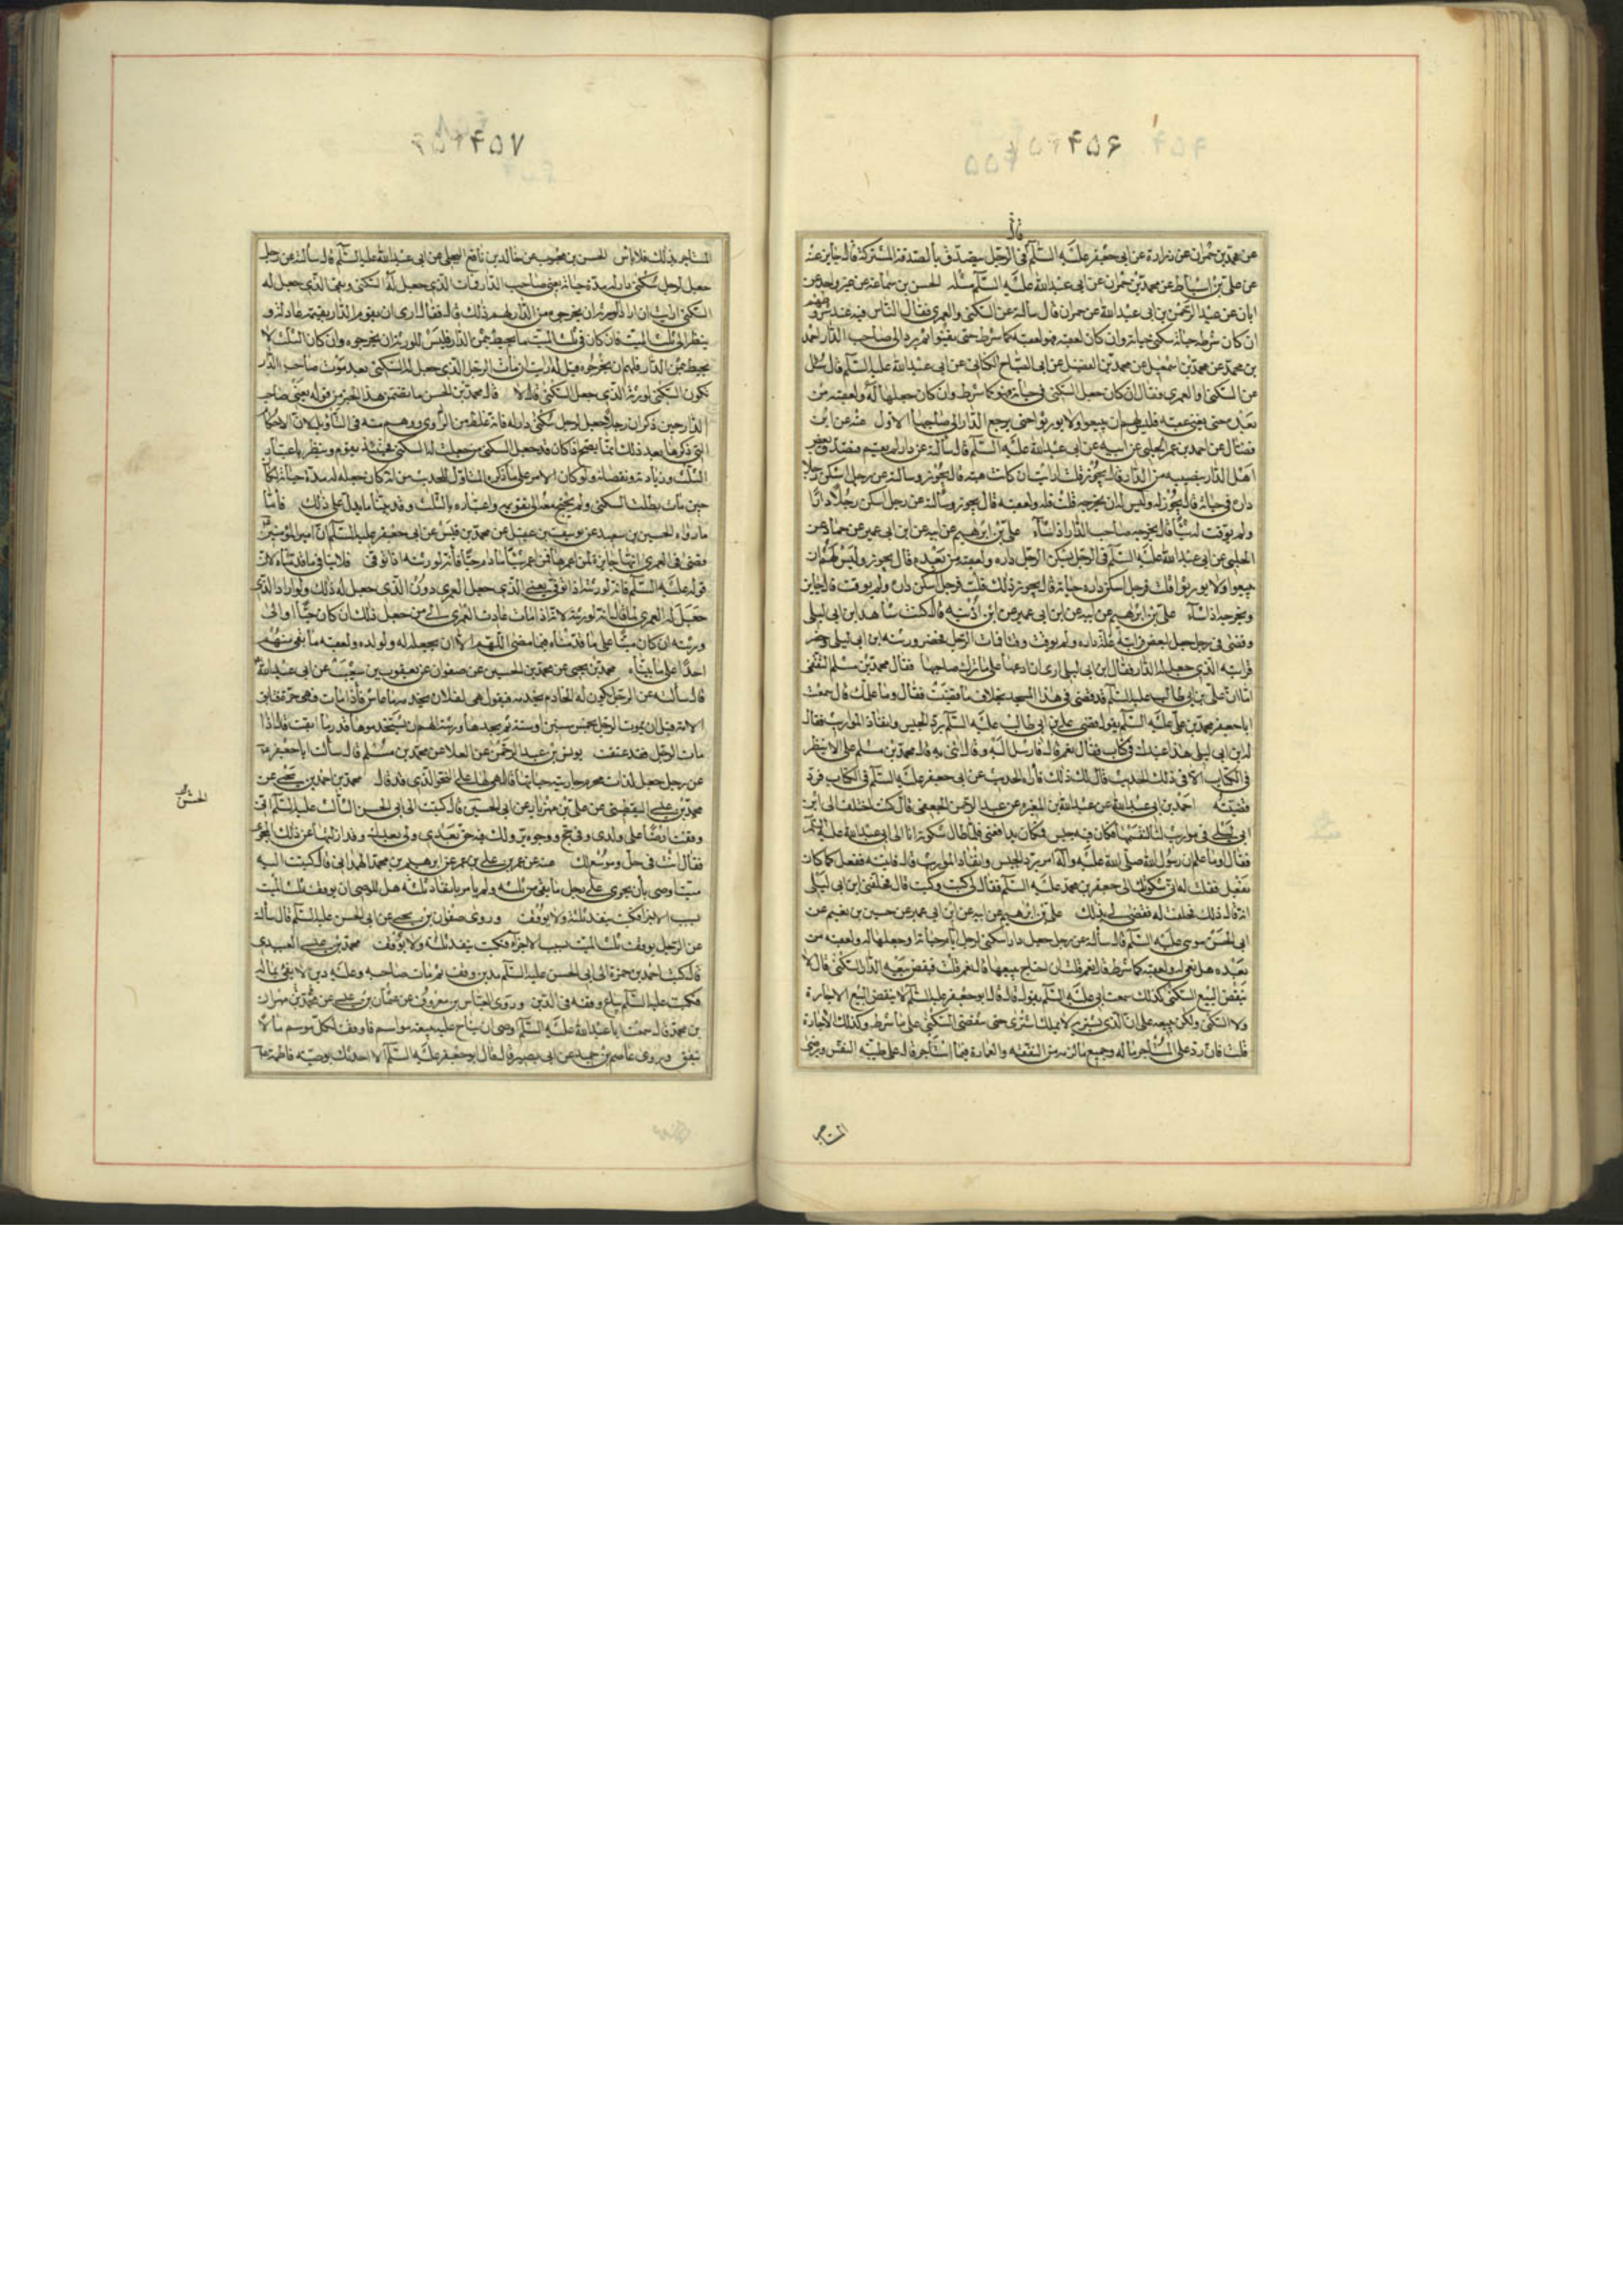 ۴۵۶
قال
عن محمد بن حمران عن زرارة عن ابي جعفر عليه السلام في الرجل يتصدق بالصدقة المشتركة قال جايز عنه
عن علي بن اسباط عن محمد بن حمران عن ابي عبد الله عليه السلام مثله الحسن بن سماعة عن غير واحد عن
ابان عن عبد الرحمن بن ابي عبد الله عن حمران قال سألته عن السكنى والعمرى فقال الناس فيه عند شروطهم
ان كان شرطه حياته سكن حياته وان كان لعقبه فهو لعقبه كما شرط حتى يفنوا ثم يرد الى صاحب الدار احمد
بن محمد عن محمد بن اسمعيل عن محمد بن الفضيل عن ابي الصباح الكناني عن ابي عبد الله عليه السلام قال سئل
عن السكنى والعمرى فقال ان كان جعل السكنى في حياته فهو كما شرط وان كان جعلها له ولعقبه من
بعده حتى يفنى عقبه فليس لهم ان يبيعوا ولا يورثوا حتى يرجع الدار الى صاحبها الاول عنه عن ابن
فضال عن احمد بن عمر الحلبي عن ابيه عن ابي عبد الله عليه السلام قال سألته عن دار لم يقسم فتصدق بعض
اهل الدار بنصيبه من الدار قال يجوز قلت ارايت ان كانت هبة قال يجوز وسألته عن رجل اسكن رجلا
داره في حياته قال يجوز له وليس له ان يخرجه قلت فله ولعقبه قال يجوز وسألته عن رجل اسكن رجلا دارا
ولم يوقت له شيئا قال يخرجه صاحب الدار اذا شاء علي بن ابرهيم عن ابيه عن ابن ابي عمير عن حماد عن
الحلبي عن ابي عبد الله عليه السلام في الرجل يسكن الرجل داره ولعقبه من بعده قال يجوز وليس لهم ان
يبيعوا ولا يورثوا قلت فرجل اسكن داره حياته قال يجوز ذلك قلت فرجل اسكن داره ولم يوقت قال جايز
ويخرجه اذا شاء علي بن ابرهيم عن ابيه عن ابن ابي عمير عن ابن اذينه قال كنت شاهد ابن ابي ليلى
وقضى في رجل جعل لبعض قرابته غلة داره ولم يوقت وقتا فمات الرجل فحضر ورثته ابن ابي ليلى وحضر
قرابته الذي جعل له الدار فقال ابن ابي ليلى ارى ان ادعها على ما تركها صاحبها فقال محمد بن مسلم الثقفي
اما ان علي بن ابي طالب عليه السلام قد قضى في هذا المسجد بخلاف ما قضيت فقال وما علمك قال سمعت
ابا جعفر محمد بن علي عليه السلام يقول قضى علي بن ابي طالب عليه السلام برد الحبيس وانفاذ المواريث فقال
له ابن ابي ليلى هذا عندك في كتاب فقال نعم قال فارسل اليه وقال ائتني به قال محمد بن مسلم على الا ينظر
في الكتاب الا في ذلك الحديث قال لك ذلك فاراه الحديث عن ابي جعفر عليه السلام في الكتاب فرد
قضيته احمد بن ابي عبد الله عن عبد الله بن المغيره عن عبد الرحمن الجعفي قال كنت اختلف الى ابن
ابي ليلى في مواريث لنا ليقسمها وكان فيه حبيس فكان يدافعني فلما طال شكوته انا الى ابي عبد الله عليه السلم
فقال اوما علم ان رسول الله صلى الله عليه واله امر برد الحبيس وانفاذ المواريث قال فاتيته ففعل كما كان
يفعل فقلت له اني شكوتك الى جعفر بن محمد عليه السلام فقال لي كيت وكيت قال فحلفني ابن ابي ليلى
انه قال ذلك فحلفت له فقضى لي بذلك علي بن ابرهيم عن ابيه عن ابن ابي عمير عن حسين بن نعيم عن
ابي الحسن موسى عليه السلام قال سألته عن رجل جعل دار اسكنى لرجل ايام حياته او جعلها له ولعقبه من
بعده هل هي له ولعقبه كما شرط قال نعم قلت ان احتاج يبيعها قال نعم قلت فينقض بيعه الدار السكنى قال لا
ينقض البيع السكنى كذلك سمعت ابي عليه السلم يقول قال قال ابو جعفر عليه السلم لا ينقض البيع الاجارة
ولا السكنى ولكن يبيعه على ان الذي يشتريه لا يملك اشترى حتى تنقضي السكنى على ما شرط وكذلك الاجارة
قلت فان رد على المستاجر ماله وجميع ما لزمه من النفقة والعمارة فيما استاجر قال على طيبة النفس ويرضى
المستاجر
۴۵۷
المستاجر بذلك فلا باس الحسن بن محبوب عن خالد بن نافع البجلي عن ابي عبد الله عليه السلام قال سألته عن رجل
جعل لرجل سكنى دار له مدة حياته يعني صاحب الدار فمات الذي جعل له السكنى وبقي الذي جعل له
السكنى ارايت ان اراد الورثة ان يخرجوه من الدار لهم ذلك قال فقال ارى ان يقوم الدار بقيمة عادلة و
ينظر الى ثلث الميت فان كان في ثلث الميت ما يحيط بثمن الدار فليس للورثة ان يخرجوه وان كان الثلث لا
يحيط بثمن الدار فلهم ان يخرجوه قيل له ارايت ان مات الرجل الذي جعل له السكنى بعد موت صاحب الدار
تكون السكنى لورثة الذي جعل السكنى قال لا قال محمد بن الحسن ما تضمن هذا الخبر من قوله يعني صاحب
الدار حين ذكر ان رجلا جعل لرجل سكنى دار له فانه غلط من الراوي ووهم منه في التاويل لان الاحكام
التي ذكرها بعد ذلك انما يصح اذا كان قد جعل السكنى مدة حيات من جعلت له السكنى فحينئذ يقوم وينظر باعتبار
الثلث وزيادته ونقصانه ولو كان الامر على ما ذكره المتاول للحديث من انه كان جعله له مدة حياته لكان
حين مات بطلت السكنى ولم يحتج معه الى تقويمه واعتباره بالثلث وقد بينا ما يدل على ذلك فاما
ما رواه الحسين بن سعيد عن يوسف بن عقيل عن محمد بن قيس عن ابي جعفر عليه السلم ان امير المؤمنين
قضى في العمرى انها جايزة لمن اعمرها فمن اعمر شيئا ما دام حيا فانه لورثته اذا توفى فلا ينافي ما قدمناه لان
قوله عليه السلم فانه لورثته اذا توفى يعني الذي جعل العمرى دون الذي جعل له ذلك ولو اراد الذي
جعل له العمرى لما قال انه لورثته لانه اذا مات عادت العمرى الى من جعل ذلك ان كان حيا او الى
ورثته ان كان ميتا على ما قدمناه فيما مضى اللهم الا ان يجعله له ولولده ولعقبه ما بقي منهم
احد على ما بيناه محمد بن يحيى عن محمد بن الحسين عن صفوان عن يعقوب بن شعيب عن ابي عبد الله
قال سألته عن الرجل يكون له الخادم يخدمه فيقول هي لفلان يخدمه ما عاش فاذا مات فهي حرة فتابق
الامة قبل ان يموت الرجل بخمس سنين او ستة ثم يجدها ورثته الهم ان يستخدموها قدر ما ابقت قال اذا
مات الرجل فقد عتقت يونس بن عبد الرحمن عن العلا عن محمد بن مسلم قال سالت ابا جعفر
عن رجل جعل لذات محرم جاريته حياتها قال هي لها على النحو الذي قد قال محمد بن احمد بن يحيى عن
محمد بن عيسى اليقطيني عن علي بن مهزيار عن ابي الحسين قال كتبت الى ابي الحسن الثالث عليه السلم اني
وقفت ارضا على ولدي وفي حج ووجوه بر ولك فيه حق بعدي ولي بعدك وقد ازلتها عن ذلك المجرى
فقال انت في حل وموسع لك عنه عن عمر بن علي بن عمر عن ابرهيم بن محمد الهمداني قال كتبت اليه
ميت اوصى بان يجرى على رجل ما بقي من ثلثه ولم يامر بانفاذ ثلثه هل للوصي ان يوقف ثلث الميت
بسبب الاجراء فكتب ينفذ ثلثه ولا يوقف وروى صفوان بن يحيى عن ابي الحسن عليه السلم قال سألته
عن الرجل يوقف ثلث الميت بسبب الاجراء فكتب ينفذ ثلثه ولا يوقف محمد بن عيسى العبيدي
قال كتب احمد بن حمزة الى ابي الحسن عليه السلم مدين وقف ثم مات صاحبه وعليه دين لا يفي بماله
فكتب عليه السلم يباع وقفه في الدين وروى العباس بن معروف عن عثمان بن عيسى عن مهران
بن محمد قال سمعت ابا عبد الله عليه السلم اوصى ان يناح عليه سبعة مواسم فاوقف لكل موسم مالا
ينفق وروى عاصم بن حميد عن ابي بصير قال قال ابو جعفر عليه السلم الا احدثك بوصية فاطمة